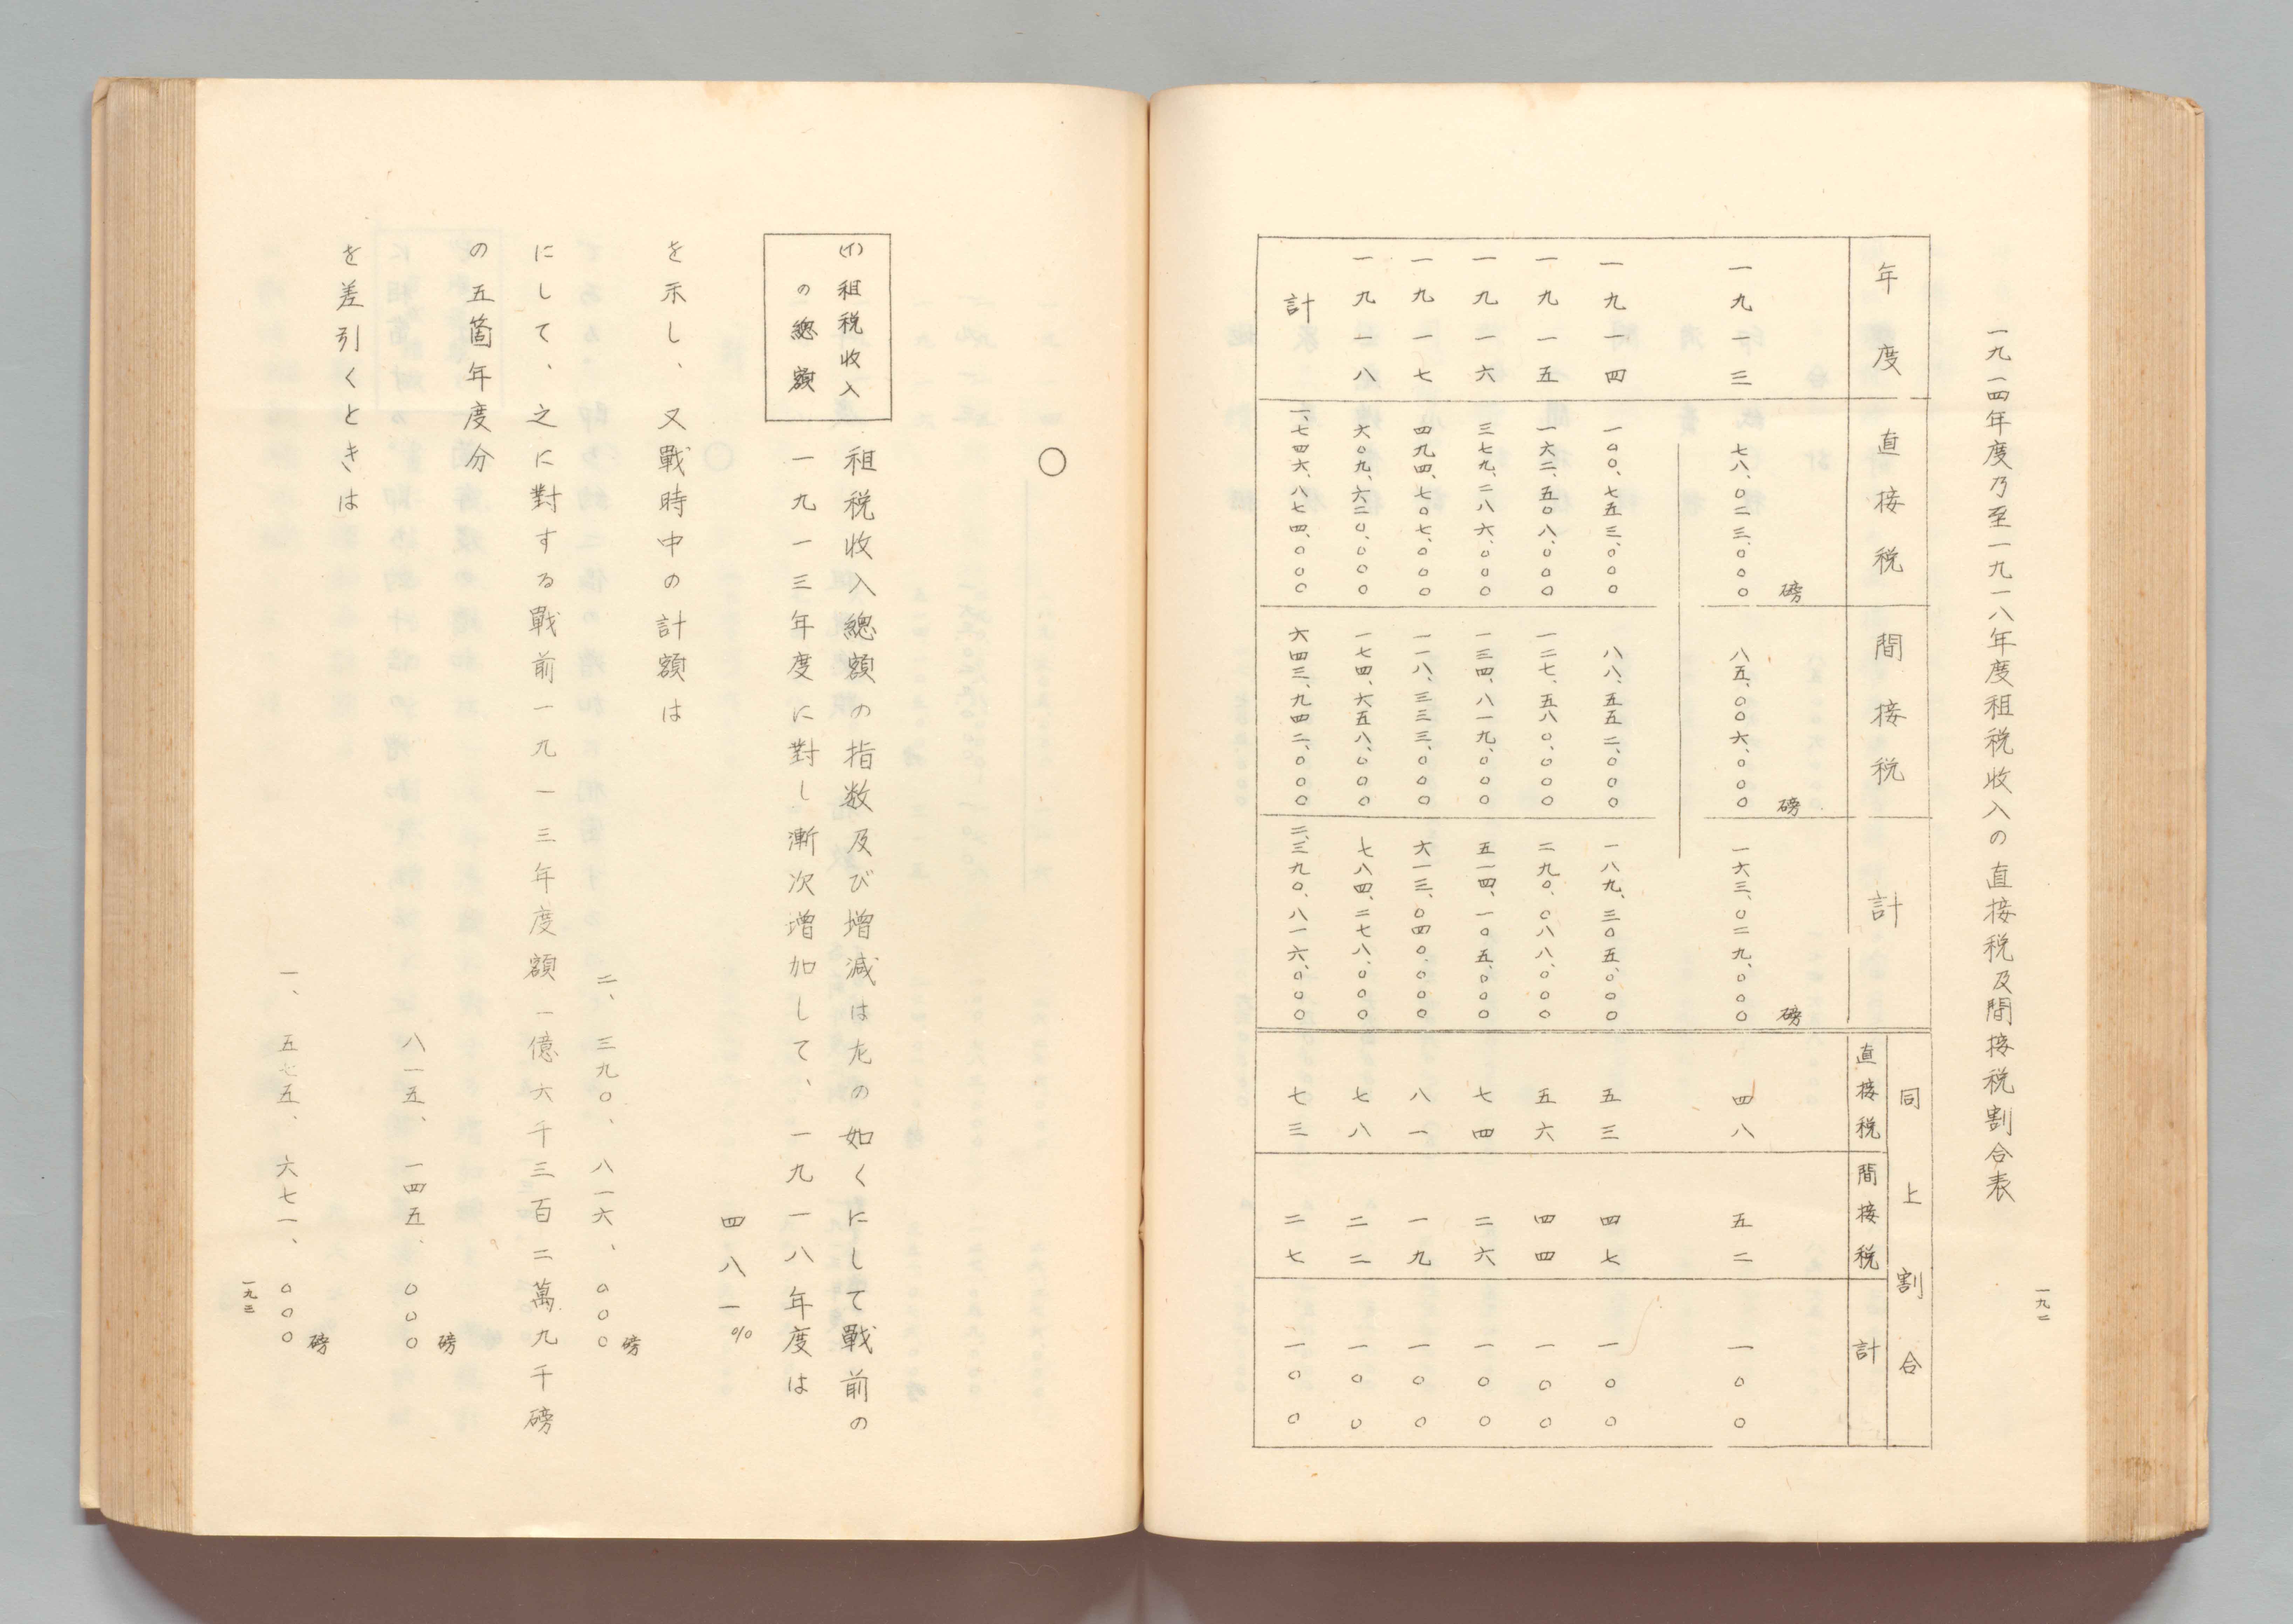 一九一四年度乃至一九一八年度租税收入の直接税及間接税割合表
一九二
年度 直接税 間接税 計 同上割合
直接税 間接税 計
磅 磅 磅
一九一三 七八、〇二三、〇〇〇 八五、〇〇六、〇〇〇 一六三、〇二九、〇〇〇 四八 五二 一〇〇
一九一四 一〇〇、七五三、〇〇〇 八八、五五二、〇〇〇 一八九、三〇五、〇〇〇 五三 四七 一〇〇
一九一五 一六二、五〇八、〇〇〇 一二七、五八〇、〇〇〇 二九〇、〇八八、〇〇〇 五六 四四 一〇〇
一九一六 三七九、二八六、〇〇〇 一三四、八一九、〇〇〇 五一四、一〇五、〇〇〇 七四 二六 一〇〇
一九一七 四九四、七〇七、〇〇〇 一一八、三三三、〇〇〇 六一三、〇四〇、〇〇〇 八一 一九 一〇〇
一九一八 六〇九、六二〇、〇〇〇 一七四、六五八、〇〇〇 七八四、二七八、〇〇〇 七八 二二 一〇〇
計 一、七四六、八七四、〇〇〇 六四三、九四二、〇〇〇 二、三九〇、八一六、〇〇〇 七三 二七 一〇〇
〇
(イ) 租税收入
の總額
租税收入總額の指数及び増減は左の如くにして戰前の
一九一三年度に對し漸次増加して、一九一八年度は
四八一%
を示し、又戰時中の計額は
二、三九〇、八一六、〇〇〇磅
にして、之に對する戰前一九一三年度額一億六千三百二萬九千磅
の五箇年度分
八一五、一四五、〇〇〇磅
を差引くときは
一、五七五、六七一、〇〇〇磅
一九三